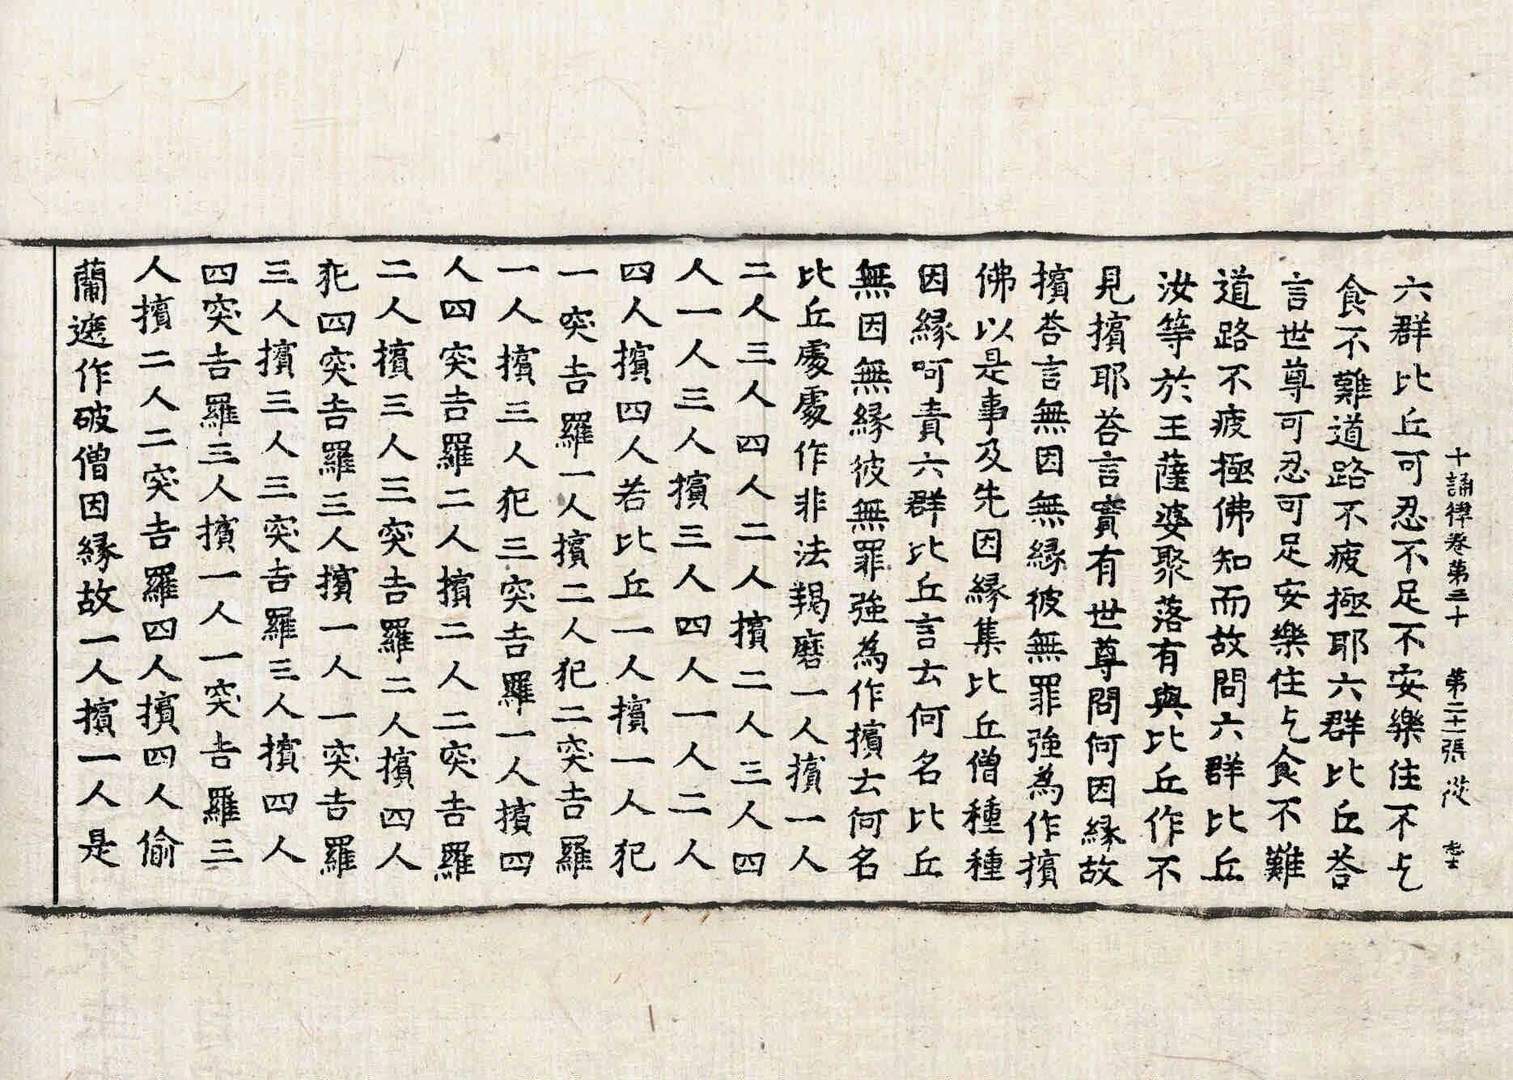 十誦律卷第三十　第二十一張　從
六群比丘可忍不足不安樂住不乞
食不難道路不疲極耶六群比丘荅
言世尊可忍可足安樂住乞食不難
道路不疲極佛知而故問六群比丘
汝等於王薩婆聚落有與比丘作不
見擯耶荅言實有世尊問何因緣故
擯荅言無因無緣彼無罪強為作擯
佛以是事及先因緣集比丘僧種種
因緣呵責六群比丘言云何名比丘
無因無緣彼無罪強為作擯云何名
比丘處處作非法羯磨一人擯一人
二人三人四人二人擯二人三人四
人一人三人擯三人四人一人二人
四人擯四人若比丘一人擯一人犯
一突吉羅一人擯二人犯二突吉羅
一人擯三人犯三突吉羅一人擯四
人四突吉羅二人擯二人二突吉羅
二人擯三人三突吉羅二人擯四人
犯四突吉羅三人擯一人一突吉羅
三人擯三人三突吉羅三人擯四人
四突吉羅三人擯一人一突吉羅三
人擯二人二突吉羅四人擯四人偷
蘭遮作破僧因緣故一人擯一人是